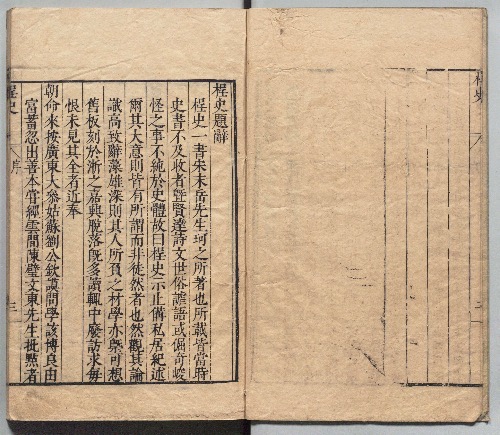 桯史
桯史題辭
桯史一書宋末岳先生珂之所著也所載皆當時
史書不及收者曁賢達詩文世俗謔語或倔奇峻
怪之事不純於史體故曰桯史示止備私居紀述
爾其大意則皆有所謂而非徒然者也然觀其論
議高致辭藻雄深則其人所負之材學亦槩可想
舊板刻於浙之嘉興脫落旣多讀輒中廢訪求每
恨未見其全者近奉
朝命來按廣東大參姑蘇劉公欽謨問學該博良由
富蓄忽出善本甞經雲間陳璧文東先生批點者
桯史
序
三